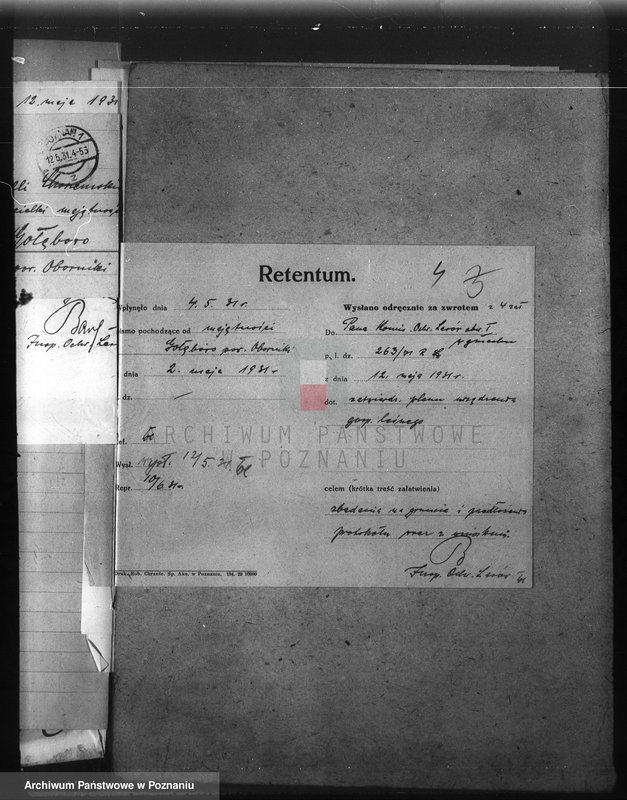 12. maja 1931
POZNAŃ 1
12.5.31.4-5
2
mejętność
Gołębowo
pow. Oborniki
Insp. Ochr. Las
Retentum.
4
Wpłynęło dnia 4. 5. 31 r.
pismo pochodzące od majętności
Gołębowo pow. Oborniki
dnia 2. maja 1931 r.
dz. —
Ref.
Wysł. wysł. 12/5 31.
Repr. 10/6 31 r.
Druk. Rob. Chrześc. Sp. Akc. w Poznaniu. 194. 29 10000
Wysłano odręcznie za zwrotem z 4 zał
Do Pana Komis. Ochr. Lasów obw. I
w gmachu
p. l. dz. 263/31 Z
z dnia 12. maja 1931 r.
dot. zatwierdz. planu urządzenia
gosp. leśnego
celem (krótka treść załatwienia)
zbadania na gruncie i przedłożenia
protokołu oraz z wnioskami.
B
Insp. Ochr. Lasów
ARCHIWUM PAŃSTWOWE
W POZNANIU
Archiwum Państwowe w Poznaniu